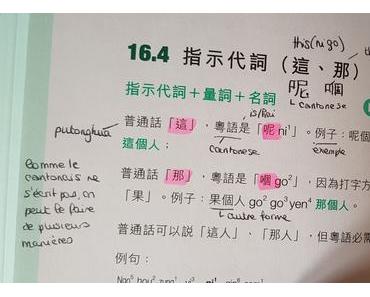 this (ni go)
16.4 指示代詞（這、那）
呢 嗰
↳ cantonese
指示代詞＋量詞＋名詞
putonghua
普通話「這」，粵語是「呢 ni¹」。例子：呢個
cantonese
exemple
這個人；
普通話「那」，粵語是「嗰 go²」，因為打字方
「果」。例子：果個人 go² go³ yen⁴ 那個人。
↳ autre forme
comme le
cantonais ne
s'écrit pas, on
peut le faire
de plusieurs
manières
普通話可以說「這人」、「那人」，但粵語必需
例句：